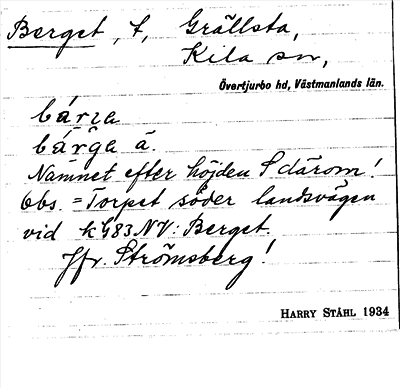 Berget, t, Grällsta,
Kila sn,
Övertjurbo hd, Västmanlands län.
bárza
bárga ä.
Namnet efter höjden S därom!
Obs. = Torpet söder landsvägen
vid k 483 NV: Berget.
Jfr. Strömsberg!
HARRY STÅHL 1934